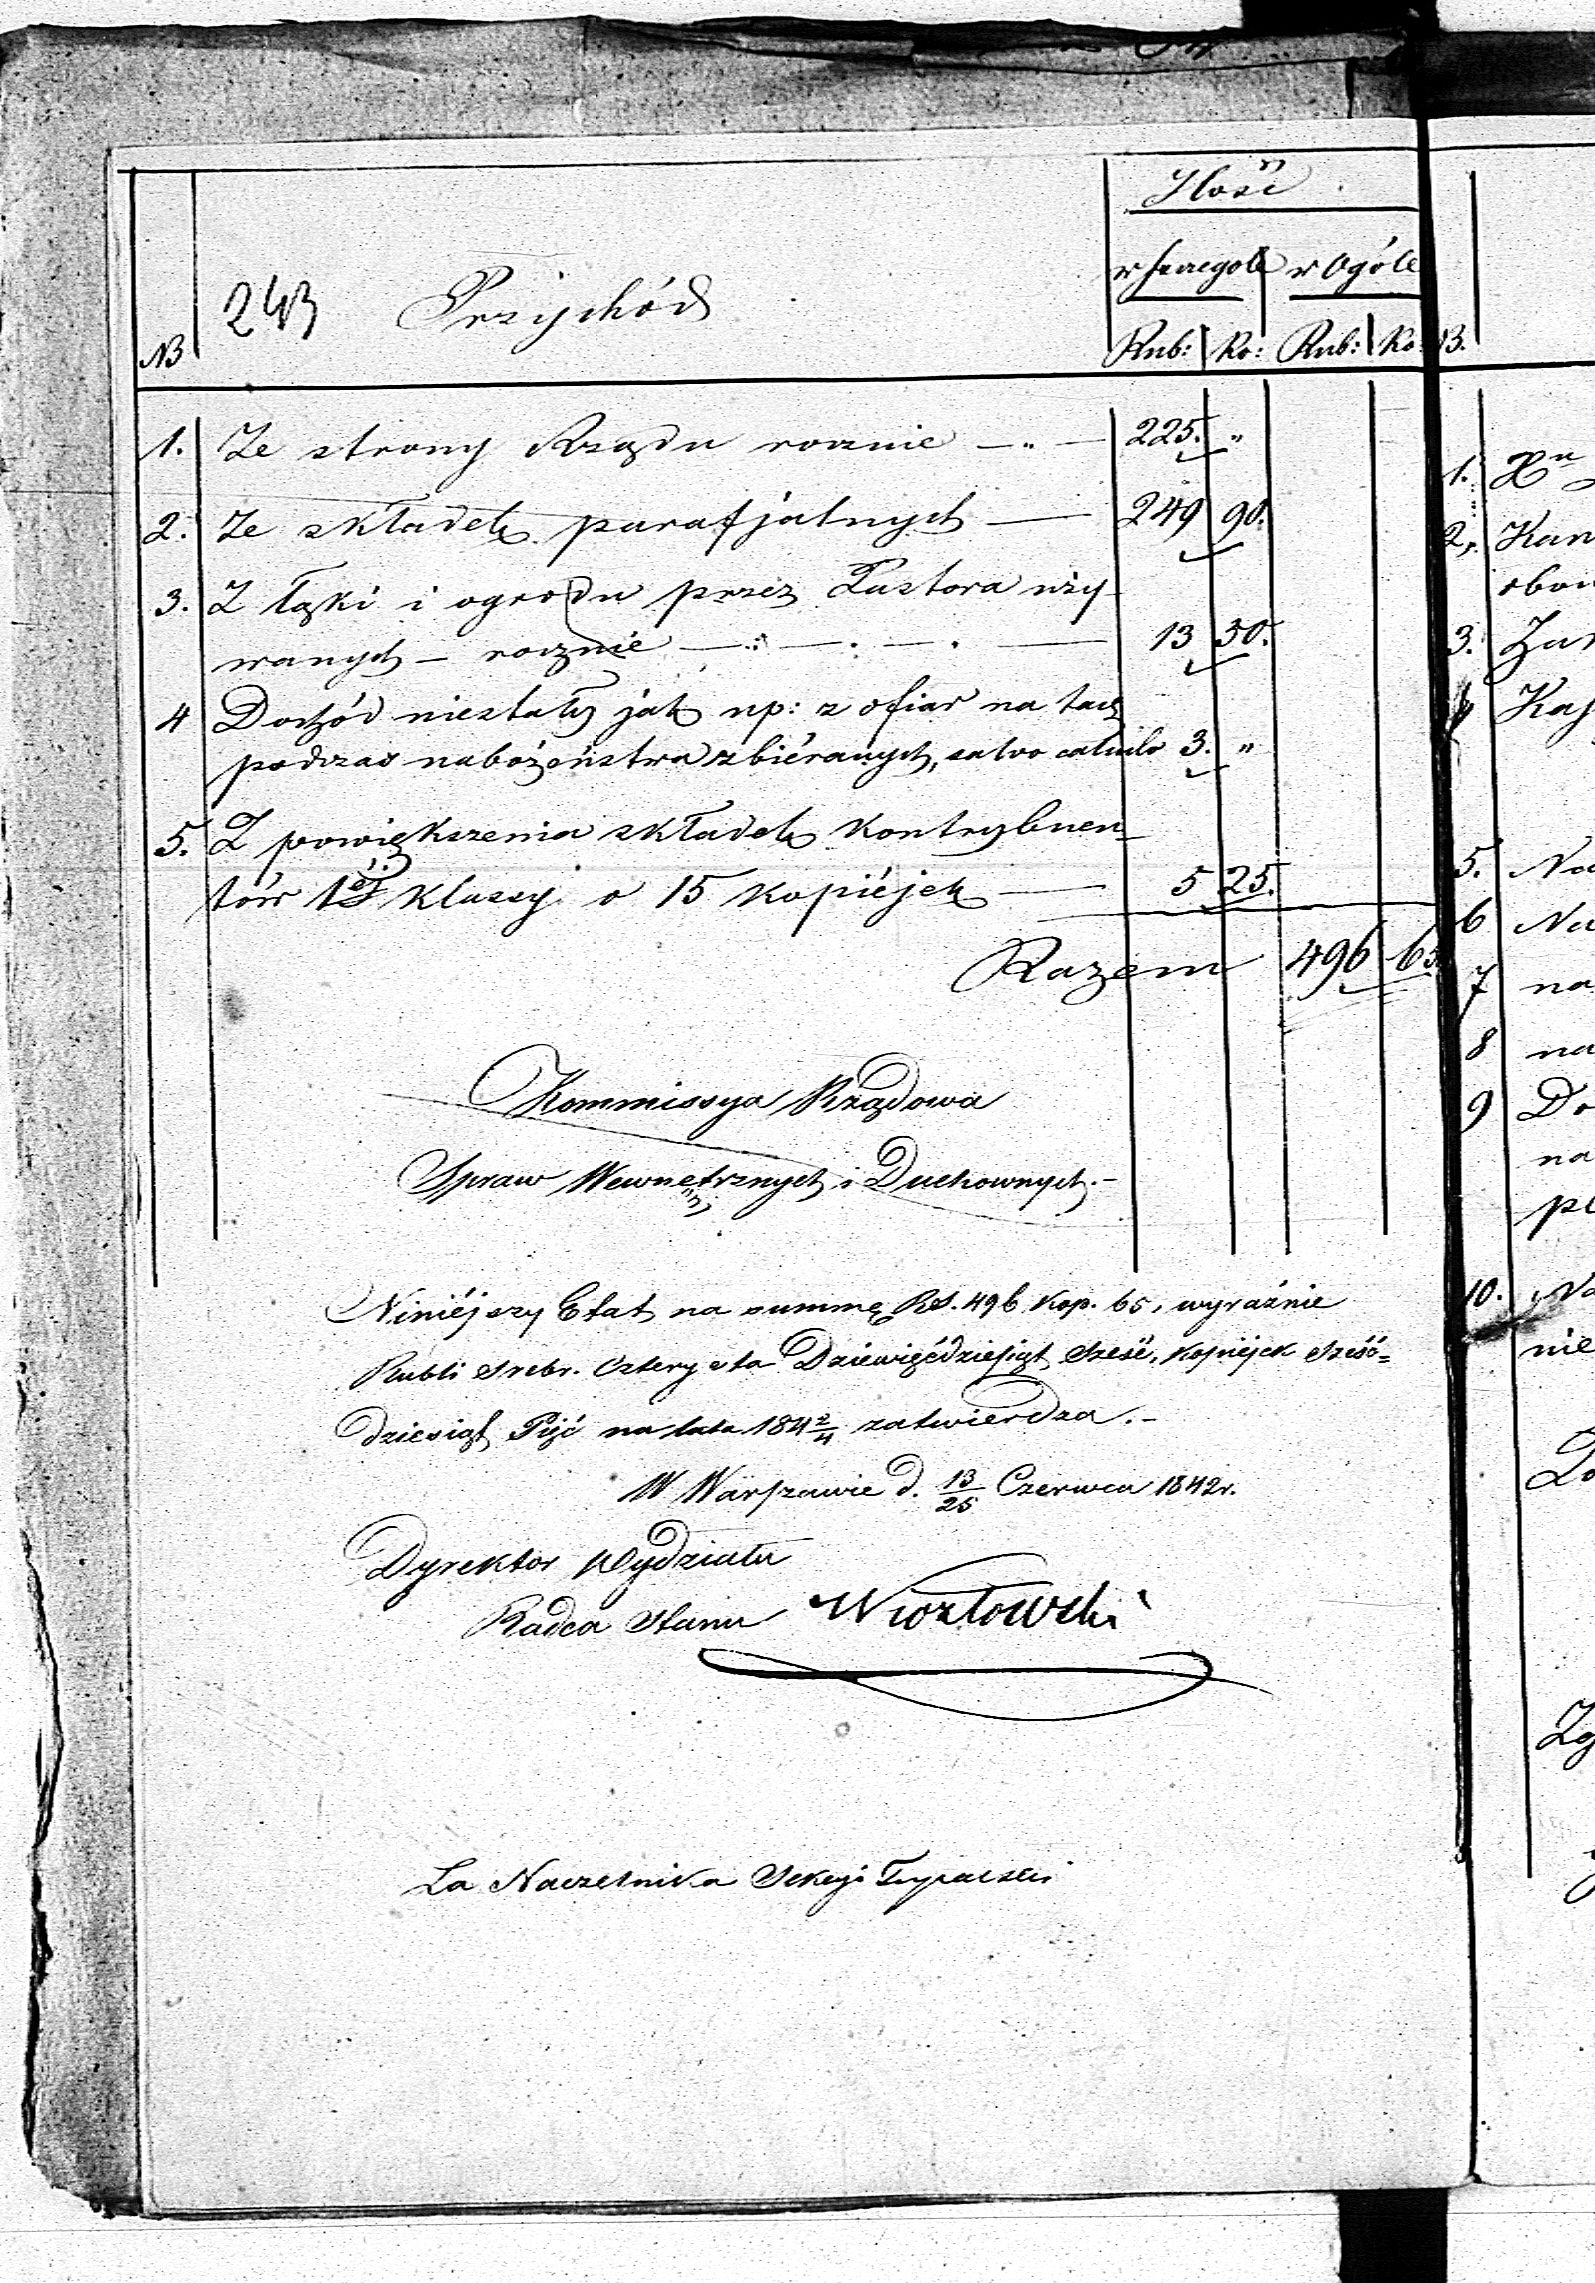 Ilość
w szczególe w Ogóle
243 Przychód
NB Rub: Ko: Rub: Ko: B.
1. Ze strony Rządu rocznie — " — 225. "
2. Ze składek parafjalnych — 249 90.
3. Z łąki i ogrodu przez Pastora uży-
wanych — rocznie — 13 50.
4 Dochód niestały jak np: z ofiar na tacę
podczas nabożeństwa zbiéranych, salvo calculo 3. "
5. Z powiększenia składek kontrybuen-
tów 1éj klassy o 15 kopiéjek — 5 25.
Razem 496 65
Kommissya Rządowa
Spraw Wewnętrznych i Duchownych.-
Niniéjszy Etat na summę RS. 496 Kop. 65, wyraźnie
Rubli srebr. Cztery sta Dziewięćdziesiąt sześć, kopiéjek sześć=
dziesiąt Pięć na lata 184 2/4 zatwierdza.-
W Warszawie d. 13/25 Czerwca 1842r.
Dyrektor Wydziału
Radca Stanu
Za Naczelnika Sekcyi
1.
2. Kan
3.
4
5.
6 Na
7 na
8 na
9 Do
na
10. Na
nie